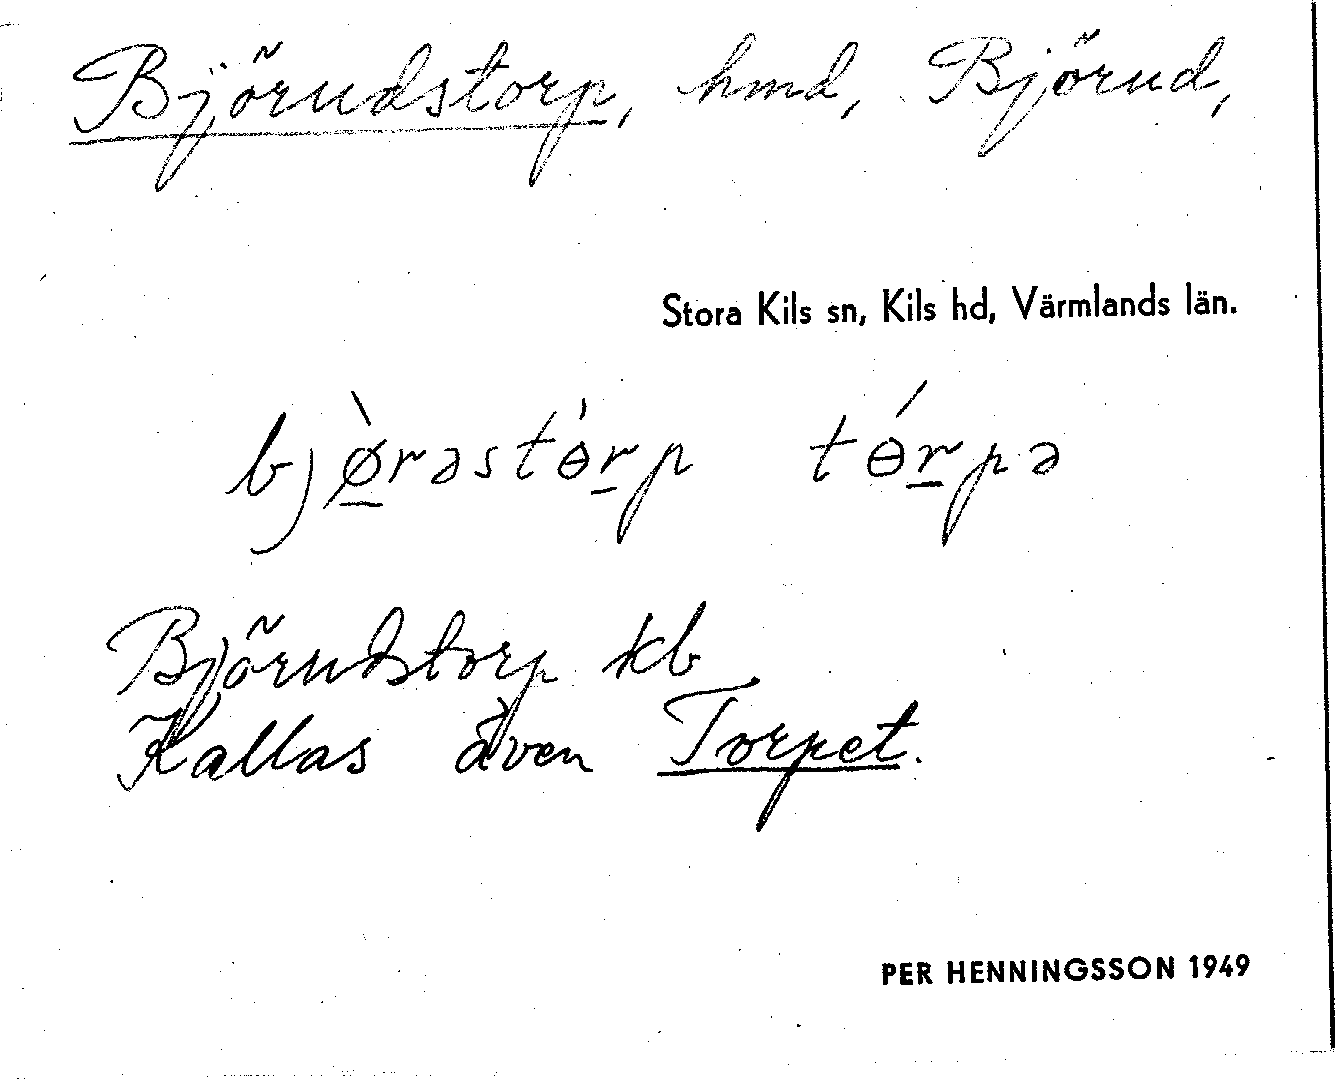 Björudstorp, hmd, Björud,
Stora Kils sn, Kils hd, Värmlands län.
bjø̠̀rəstɵ̍r̠p tɵ́r̠pə
Björudstorp kb
Kallas även Torpet.
PER HENNINGSSON 1949